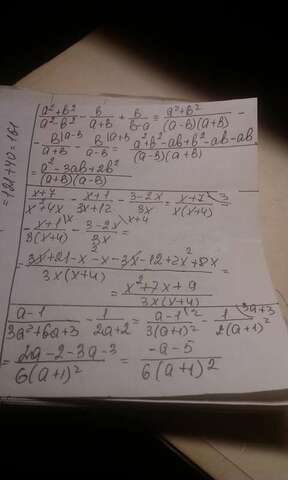 = 121+40 = 161
(a²+b²)/(a²-b²) - b/(a+b) + b/(b-a) = (a²+b²)/((a-b)(a+b)) -
- b|a-b/(a+b) - b|a+b/(a-b) = (a²+b²-ab+b²-ab-ab)/((a-b)(a+b))
= (a²-3ab+2b²)/((a+b)(a-b))
(x+7)/(x²+4x) - (x+1)/(3x+12) - (3-2x)/(3x) = (x+7)/(x(x+4)) \3
- (x+1)/(3(x+4)) \x - (3-2x)/(3x) \x+4 =
= (3x+21-x-x-3x-12+2x²+8x)/(3x(x+4)) =
= (x²+7x+9)/(3x(x+4))
(a-1)/(3a²+6a+3) - 1/(2a+2) = (a-1)/(3(a+1)²) \2 - 1/(2(a+1)²) \3a+3
= (2a-2-3a-3)/(6(a+1)²) = (-a-5)/(6(a+1)²)